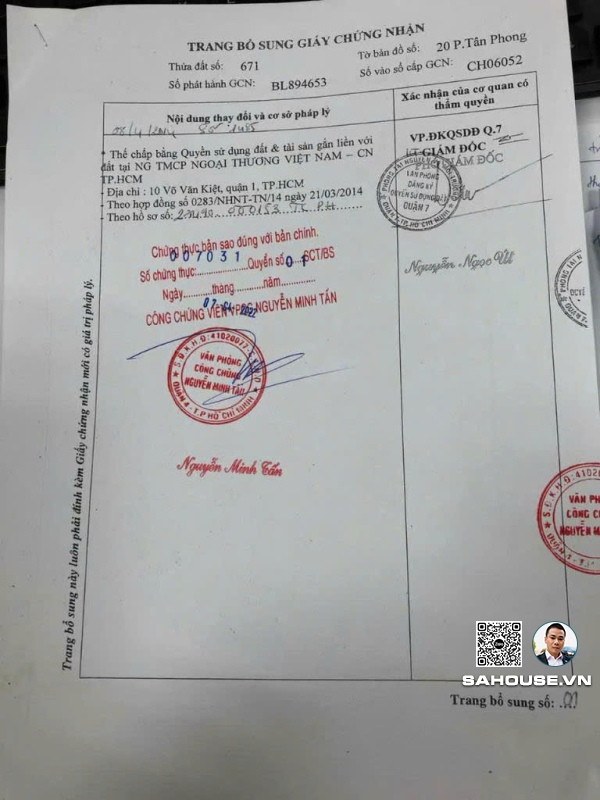 TRANG BỔ SUNG GIẤY CHỨNG NHẬN
Thửa đất số: 671 Tờ bản đồ số: 20 P.Tân Phong
Số phát hành GCN: BL894653 Số vào sổ cấp GCN: CH06052
Nội dung thay đổi và cơ sở pháp lý
Xác nhận của cơ quan có thẩm quyền
08/4/2014 Số 1485
* Thế chấp bằng Quyền sử dụng đất & tài sản gắn liền với
đất tại NG TMCP NGOẠI THƯƠNG VIỆT NAM – CN
TP.HCM
- Địa chỉ : 10 Võ Văn Kiệt, quận 1, TP.HCM
- Theo hợp đồng số 0283/NHNT-TN/14 ngày 21/03/2014
- Theo hồ sơ số:
VP.ĐKQSDĐ Q.7
KT GIÁM ĐỐC
PHÓ GIÁM ĐỐC
VĂN PHÒNG
ĐĂNG KÝ
QUYỀN SỬ DỤNG ĐẤT
QUẬN 7
Nguyễn Ngọc Út
Chứng thực bản sao đúng với bản chính.
Số chứng thực: 007031 Quyển số 01 SCT/BS
Ngày.......tháng.......năm.......
CÔNG CHỨNG VIÊN VPCC NGUYỄN MINH TẤN
S.Đ.K.H.Đ:41020077-C.
VĂN PHÒNG
CÔNG CHỨNG
NGUYỄN MINH TẤN
QUẬN 4 - T.P HỒ CHÍ MINH
Nguyễn Minh Tấn
S.Đ.K.H.Đ:41020
VĂN PH
CÔNG CH
NGUYỄN M
Trang bổ sung này luôn phải đính kèm Giấy chứng nhận mới có giá trị pháp lý.
SAHOUSE.VN
Trang bổ sung số: .01